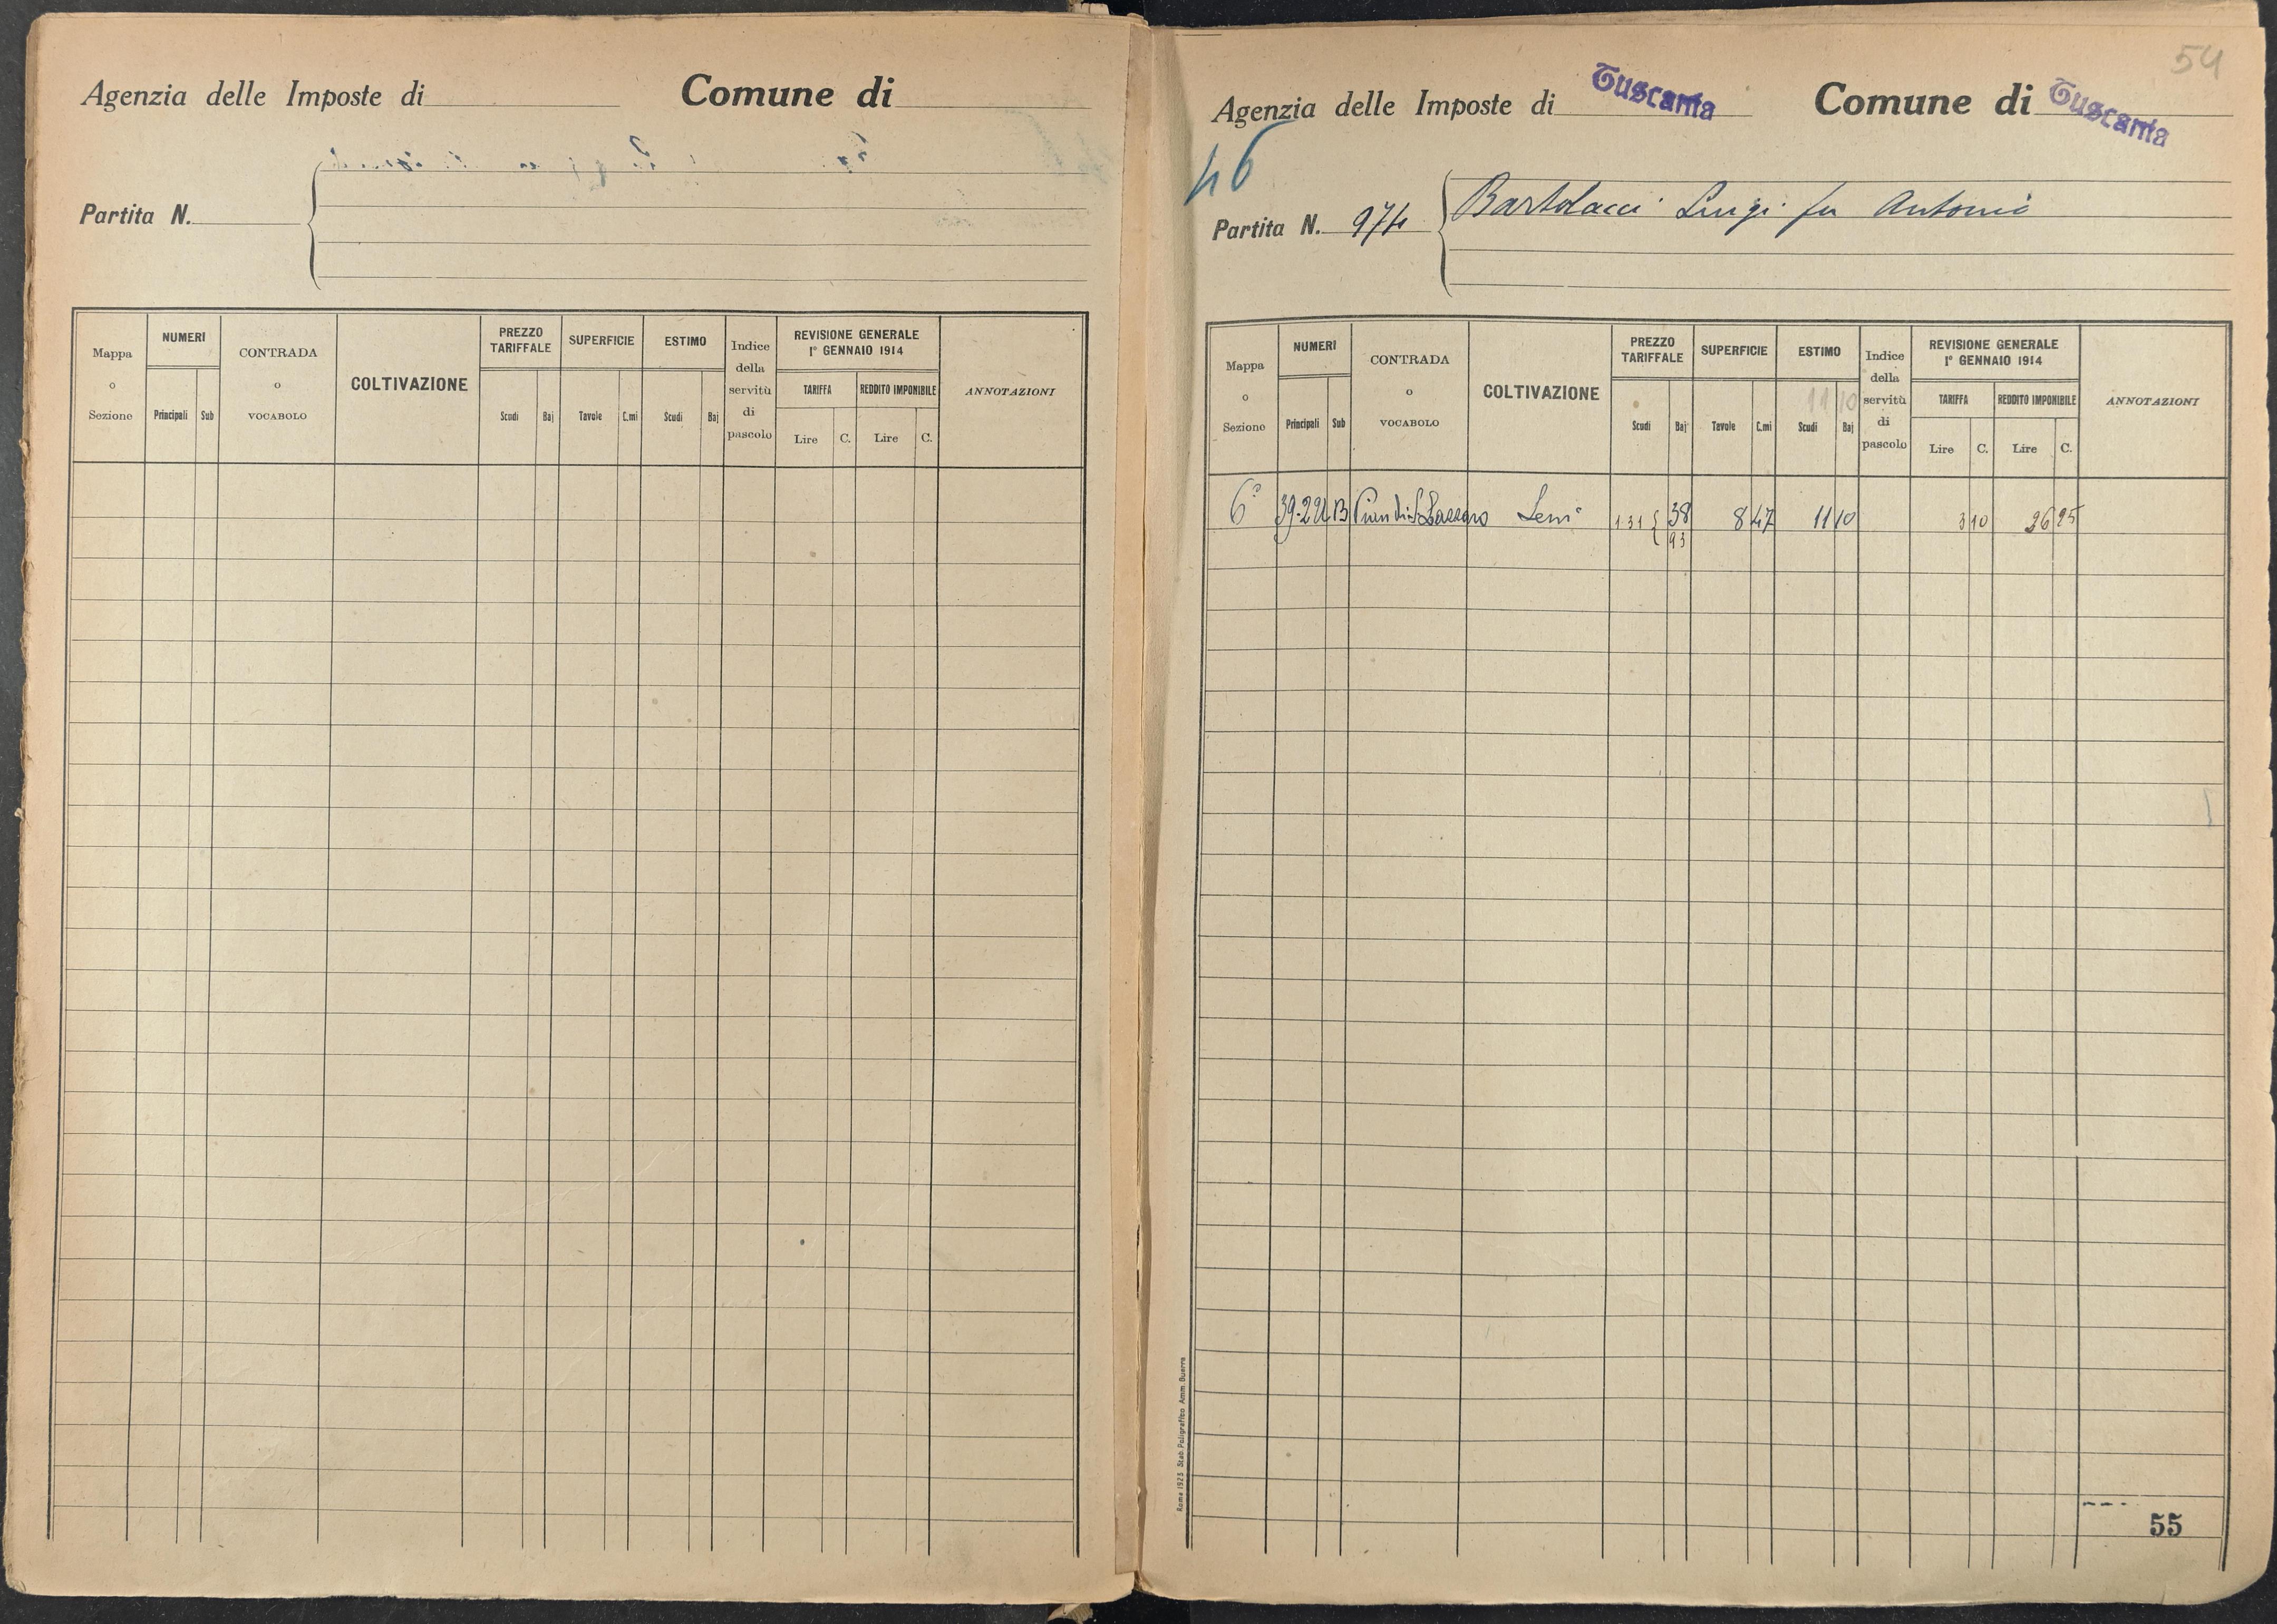 Agenzia delle Imposte di Comune di
Partita N.
Mappa o Sezione
NUMERI
Principali Sub
CONTRADA o VOCABOLO
COLTIVAZIONE
PREZZO TARIFFALE
Scudi Baj
SUPERFICIE
Tavole C.mi
ESTIMO
Scudi Baj
Indice della servitù di pascolo
REVISIONE GENERALE
1° GENNAIO 1914
TARIFFA REDDITO IMPONIBILE
Lire C. Lire C.
ANNOTAZIONI
54
Agenzia delle Imposte di Tuscania Comune di Tuscania
46
Partita N. 974 Bartolacci Luigi fu Antonio
Mappa o Sezione
NUMERI
Principali Sub
CONTRADA o VOCABOLO
COLTIVAZIONE
PREZZO TARIFFALE
Scudi Baj
SUPERFICIE
Tavole C.mi
ESTIMO
11 10
Scudi Baj
Indice della servitù di pascolo
REVISIONE GENERALE
1° GENNAIO 1914
TARIFFA REDDITO IMPONIBILE
Lire C. Lire C.
ANNOTAZIONI
6ª 39-224 B Pian di S. Lazzaro Sem° 1.31 { 38 8 47 11 10 3 10 26 25
93
Roma 1925 Stab. Poligrafico Amm. Guerra
55